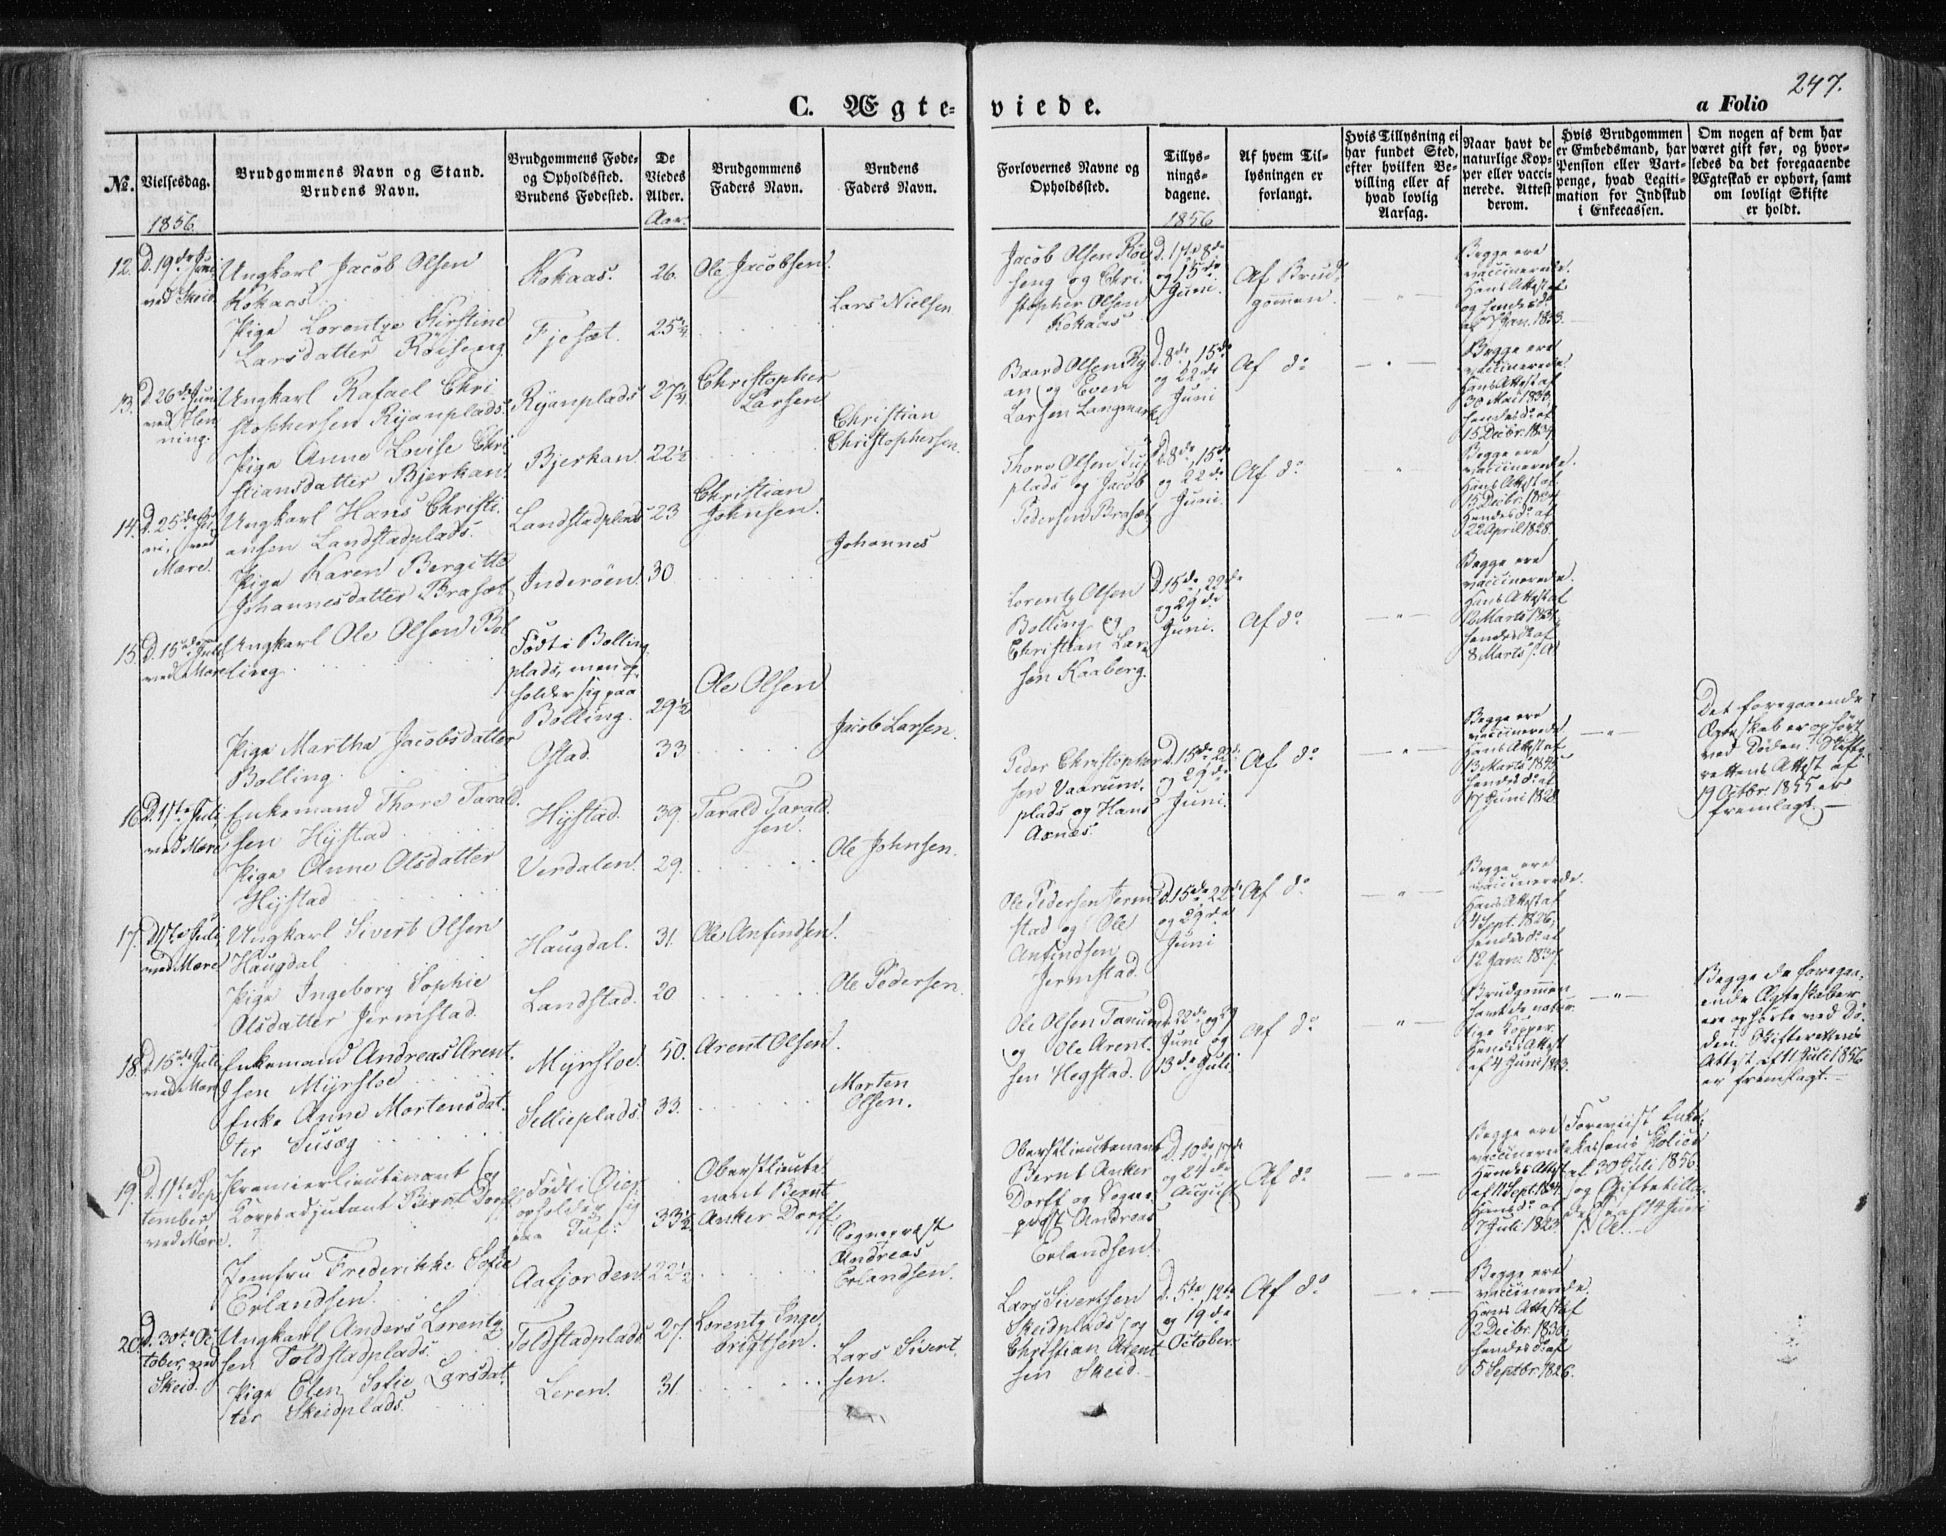 247.
C. Ægteviede.
a Folio
No.
Vielsesdag.
Brudgommens Navn og Stand.
Brudens Navn.
Brudgommens Føde-
og Opholdssted.
Brudens Fødested.
De
Viedes
Alder.
Brudgommens
Faders Navn.
Brudens
Faders Navn.
Forlovernes Navne og
Opholdssted.
Tillys-
nings-
dagene.
Af hvem Til-
lysningen er
forlangt.
Hvis Tillysning ei
har fundet Sted,
efter hvilken Be-
villing eller af
hvad lovlig
Aarsag.
Naar havt de
naturlige Kop-
per eller vacci-
nerede. Attest
derom.
Hvis Brudgommen
er Embedsmand, har
Pension eller Vart-
penge, hvad Legiti-
mation for Indskud
i Enkecassen.
Om nogen af dem har
været gift før, og hvor-
ledes da det foregaaende
Ægteskab er ophørt, samt
om lovligt Skifte
er holdt.
1856.
Aar.
1856
12.
D. 19de Juni
ved Skeid.
Ungkarl Jacob Olsen
Kokaas.
Pige Lorentze Kirstine
Larsdatter Röiseng
Kokaas.
Fjesæt.
26.
25¼
Ole Jacobsen.
Lars Nielsen
Jacob Olsen Röi
seng og Chri-
stopher Olsen
Kokaas
D. 1ste 8de
og 15de
Juni.
Af Brud-
gommen.
Begge ere
vaccinerede.
Hans Attest af
og hendes do
af Jan. 1833.
13.
D. 26de Juni
ved Hen
ning.
Ungkarl Rafael Chri
stophersen Ryanplads.
Pige Anne Lovise Chri
stiansdatter Bjerkan.
Ryanplads
Bjerkan
27¼
22½
Christopher
Larsen
Christian
Christophersen.
Baard Olsen Ry
an og Even
Larsen Langmark
D. 8de, 15de
og 22de
Juni
Af do
Begge ere
vaccinerede.
Hans Attest af
30 Mai
hendes do af
15 Decbr. 1834
14.
D. 25de Ju
ni, ved
Mære
Ungkarl Hans Christi-
ansen Landstadplads.
Pige Karen Bergitte
Johannesdatter Brasæt
Landstadplads
Inderöen
23
30.
Christian
Johnsen.
Johannes
Thore Olsen Tuf
plads og Jacob
Pedersen Brasæt
D. 8de, 15de
og 22de
Juni.
Af do
Begge ere
vaccinerede.
Hans Attest af
15 Decbr. 1834
Hendes do af
22 April 1828.
15.
D. 15de Juli
ved Mære
Ungkarl Ole Olsen Bol
ling.
Pige Martha Jacobsdatter
Bolling.
Födt i Bolling
plads, men op
holder sig paa
Bolling.
Ofstad.
29½
33
Ole Olsen
Jacob Larsen.
Lorentz Olsen
Bolling og
Christian Lar
sen Kaaberg.
D. 15de, 22de
og 29de
Juni.
Af do
Begge ere
vaccinerede.
Hans Attest af
Marts 1831,
hendes do af
8 Marts s. A
16.
D. 1ste Juli,
ved Mære
Enkemand Thore Tarald
sen Hÿstad
Pige Anne Olsdatter
Hÿstad
Hÿstad.
Verdalen.
39.
29.
Tarald Tarald
sen.
Ole Johnsen.
Peder Christopher
sen Vaarum-
plads og Hans
Axnæs.
D. 15de, 22de
og 29de
Juni.
Af do
Begge ere
vaccinerede
Hans Attest af
13 Marts
hendes do af
17 Juni 1828.
Det foregaaende
Ægteskab er ophört
ved Döden. Skifte
rettens Attest af
19 Octbr. 1855 er
fremlagt.
17.
D 1ste Juli
ved Mære
Ungkarl Sivert Olsen
Haugdal
Pige Ingeborg Sophie
Olsdatter Jermstad.
Haugdal.
Landstad.
31.
20
Ole Anfindsen.
Ole Pedersen
Ole Pedersen Jerm
stad og Ole
Anfindsen
Jermstad.
D. 15de, 22de
og 29de
Juni
Af do
Begge ere
vaccinerede
Hans Attest af
4 Sept. 1826,
hendes do af
12 Jan. 1837
18.
D. 15de Juli
ved Mære
Enkemand Andreas Arent
sen Mÿrsloe
Enke Anne Mortensdat-
ter Susæg
Mÿrsloe.
Selliæplads
50.
33.
Arent Olsen.
Morten
Olsen.
Ole Olsen
og Ole Arent-
sen Hegstad.
D. 22de og 29
Juni og
13de Juli
Af do
Brudgommen
havt de natur
lige Kopper
Hendes Attest
af 4 Juni
Begge de foregaa-
ende Ægteskaber
ere ophörte ved Dö-
den. Skifterettens
Attest af 11 Juli 1856
er fremlagt.
19.
D. 1ste Sep-
tember,
ved Mære.
Premier Lieutenant og
Korpsadjutant Bernt Dorff
Jomfru Frederikke Sofie
Erlandsen.
Födt i
opholder sig
paa Tuf.
Aafjorden
33½
22½
Oberstlieute
nant Bernt
Anker Dorff
Sogneprest
Andreas
Erlandsen.
Oberstlieutenant
Bernt Anker
Dorff og Sogne
prest Andreas
Erlandsen.
D. 10de, 17de
og 24de
August
Af do
Begge ere
vaccinerede
Hendes Attest
af 11 Sept. 1834
Hans do af
7 Juli 1823
Foreviist Enke-
kassens Police
af 30 Juli 1856
og Giftetilla
delse af 14 Juni
s. A.
20.
D. 30te Oc
tober, ved
Skeid.
Ungkarl Anders Lorentz
sen Toldstadplads.
Pige Elen Sofie Larsdat
ter Skeidplads
Toldstadplads
Leren.
27.
31.
Lorentz Inge
brigtsen.
Lars Sivert-
sen.
Lars Sivertsen
Skeidplads og
Christian Arent
sen Skeid.
D. 5te, 12te
og 19de
October.
Af do
Begge ere
vaccinerede.
Hans Attest af
2 Decbr. 1830;
hendes do af
5 Septbr. 1826.